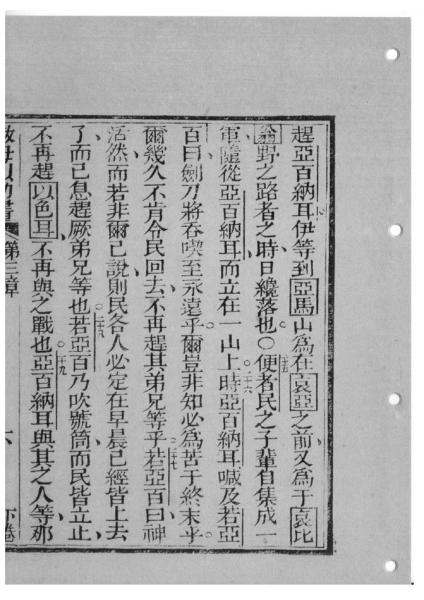 趕亞百納耳伊等到亞馬山爲在哀亞之前又爲于哀比
翁野之路者之時日纔落也○便者民之子輩自集成一
軍隨從亞百納耳而立在一山上時亞百納耳喊及若亞
百曰劍刀將吞喫至永遠乎爾豈非知必爲苦于終末乎
爾幾久不肯令民回去不再趕其弟兄等乎若亞百曰神
活然而若非爾已說則民各人必定在早晨已經皆上去
了而已息趕厥弟兄等也若亞百乃吹號筒而民皆立止
不再趕以色耳不再與之戰也亞百納耳與其之人等那
第三章 六